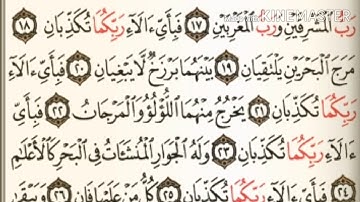 Made with
KINEMASTER
رَبُّ ٱلْمَشْرِقَيْنِ وَرَبُّ ٱلْمَغْرِبَيْنِ ١٧ فَبِأَيِّ ءَالَآءِ رَبِّكُمَا تُكَذِّبَانِ ١٨
مَرَجَ ٱلْبَحْرَيْنِ يَلْتَقِيَانِ ١٩ بَيْنَهُمَا بَرْزَخٌ لَّا يَبْغِيَانِ ٢٠ فَبِأَيِّ ءَالَآءِ
رَبِّكُمَا تُكَذِّبَانِ ٢١ يَخْرُجُ مِنْهُمَا ٱللُّؤْلُؤُ وَٱلْمَرْجَانُ ٢٢ فَبِأَيِّ
ءَالَآءِ رَبِّكُمَا تُكَذِّبَانِ ٢٣ وَلَهُ ٱلْجَوَارِ ٱلْمُنشَـَٔاتُ فِي ٱلْبَحْرِ كَٱلْأَعْلَـٰمِ
٢٤ فَبِأَيِّ ءَالَآءِ رَبِّكُمَا تُكَذِّبَانِ ٢٥ كُلُّ مَنْ عَلَيْهَا فَانٍ ٢٦ وَيَبْقَىٰ